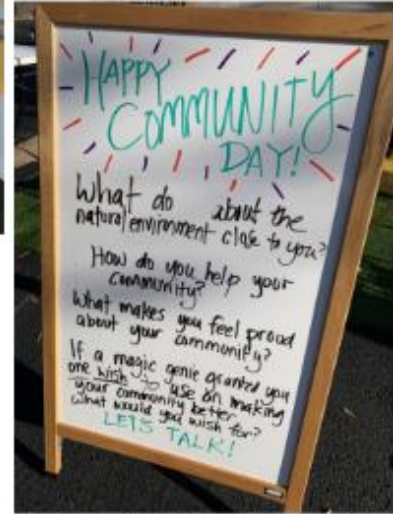 HAPPY
COMMUNITY
DAY!
What do about the
natural environment close to you?
How do you help your
community?
What makes you feel proud
about your community?
If a magic genie granted you
one wish to use on making
your community better
what would you wish for?
LETS TALK!